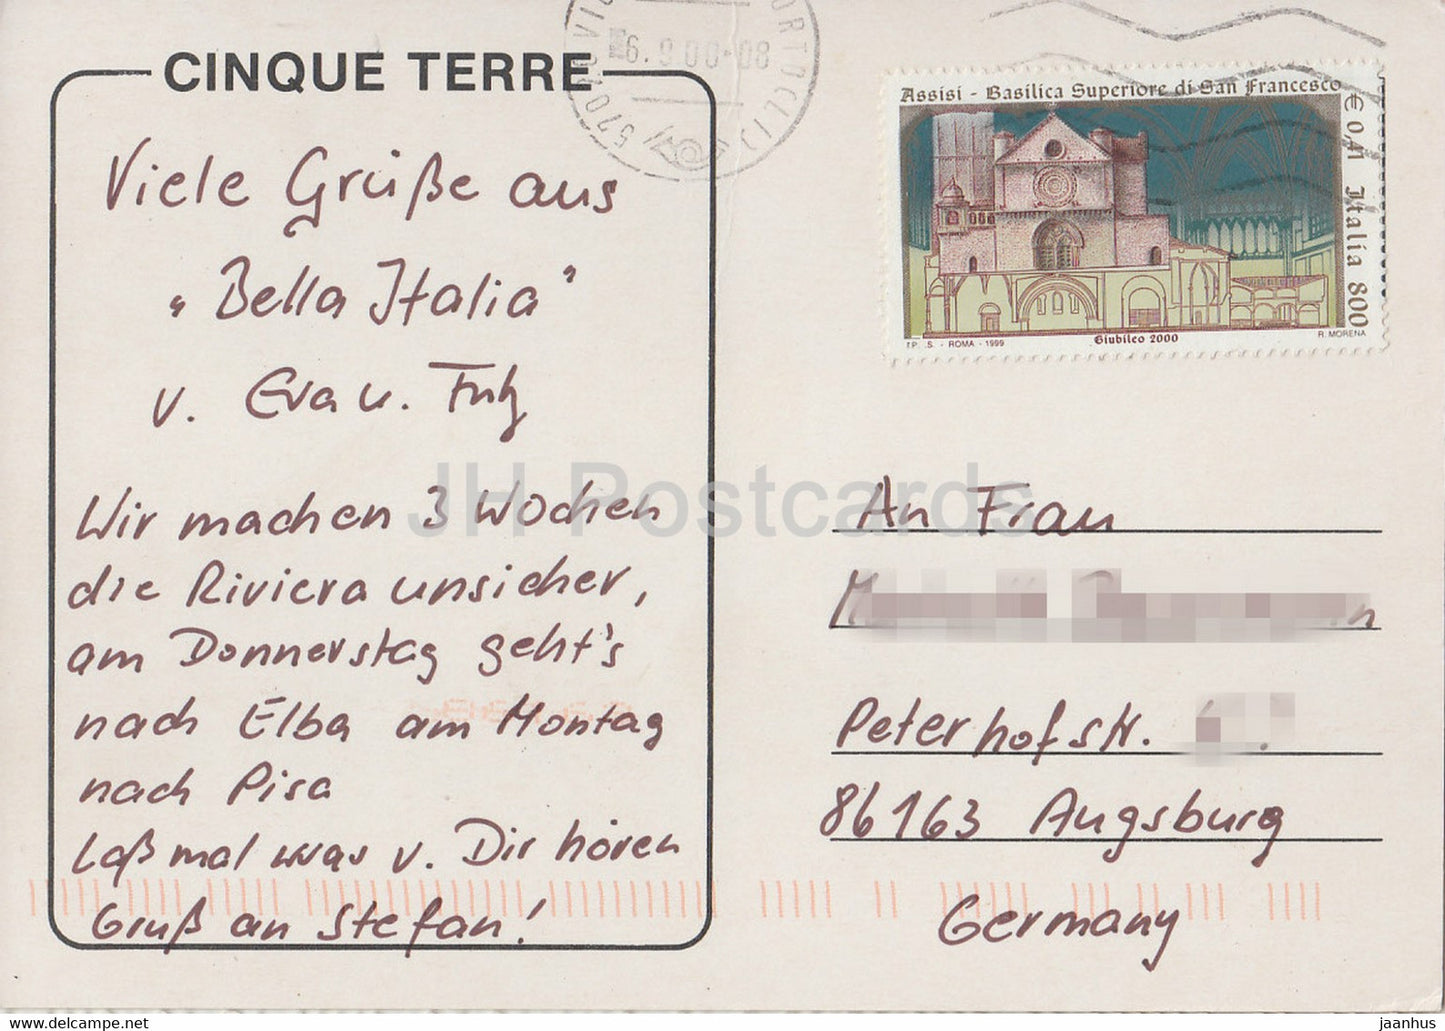 CINQUE TERRE
Viele Grüße aus
"Bella Italia"
v. Eva u. Fritz
Wir machen 3 Wochen
die Riviera unsicher,
am Donnerstag geht's
nach Elba am Montag
nach Pisa
Laß mal was v. Dir hören
Gruß an Stefan!
6.9.00-08
57010
Assisi - Basilica Superiore di San Francesco
€ 0,41 Italia 800
Giubileo 2000
I.P. .S. - ROMA - 1999
R. MORENA
An Frau
Peterhofstr.
86163 Augsburg
Germany
JH Postcards
www.delcampe.net
jaanhus